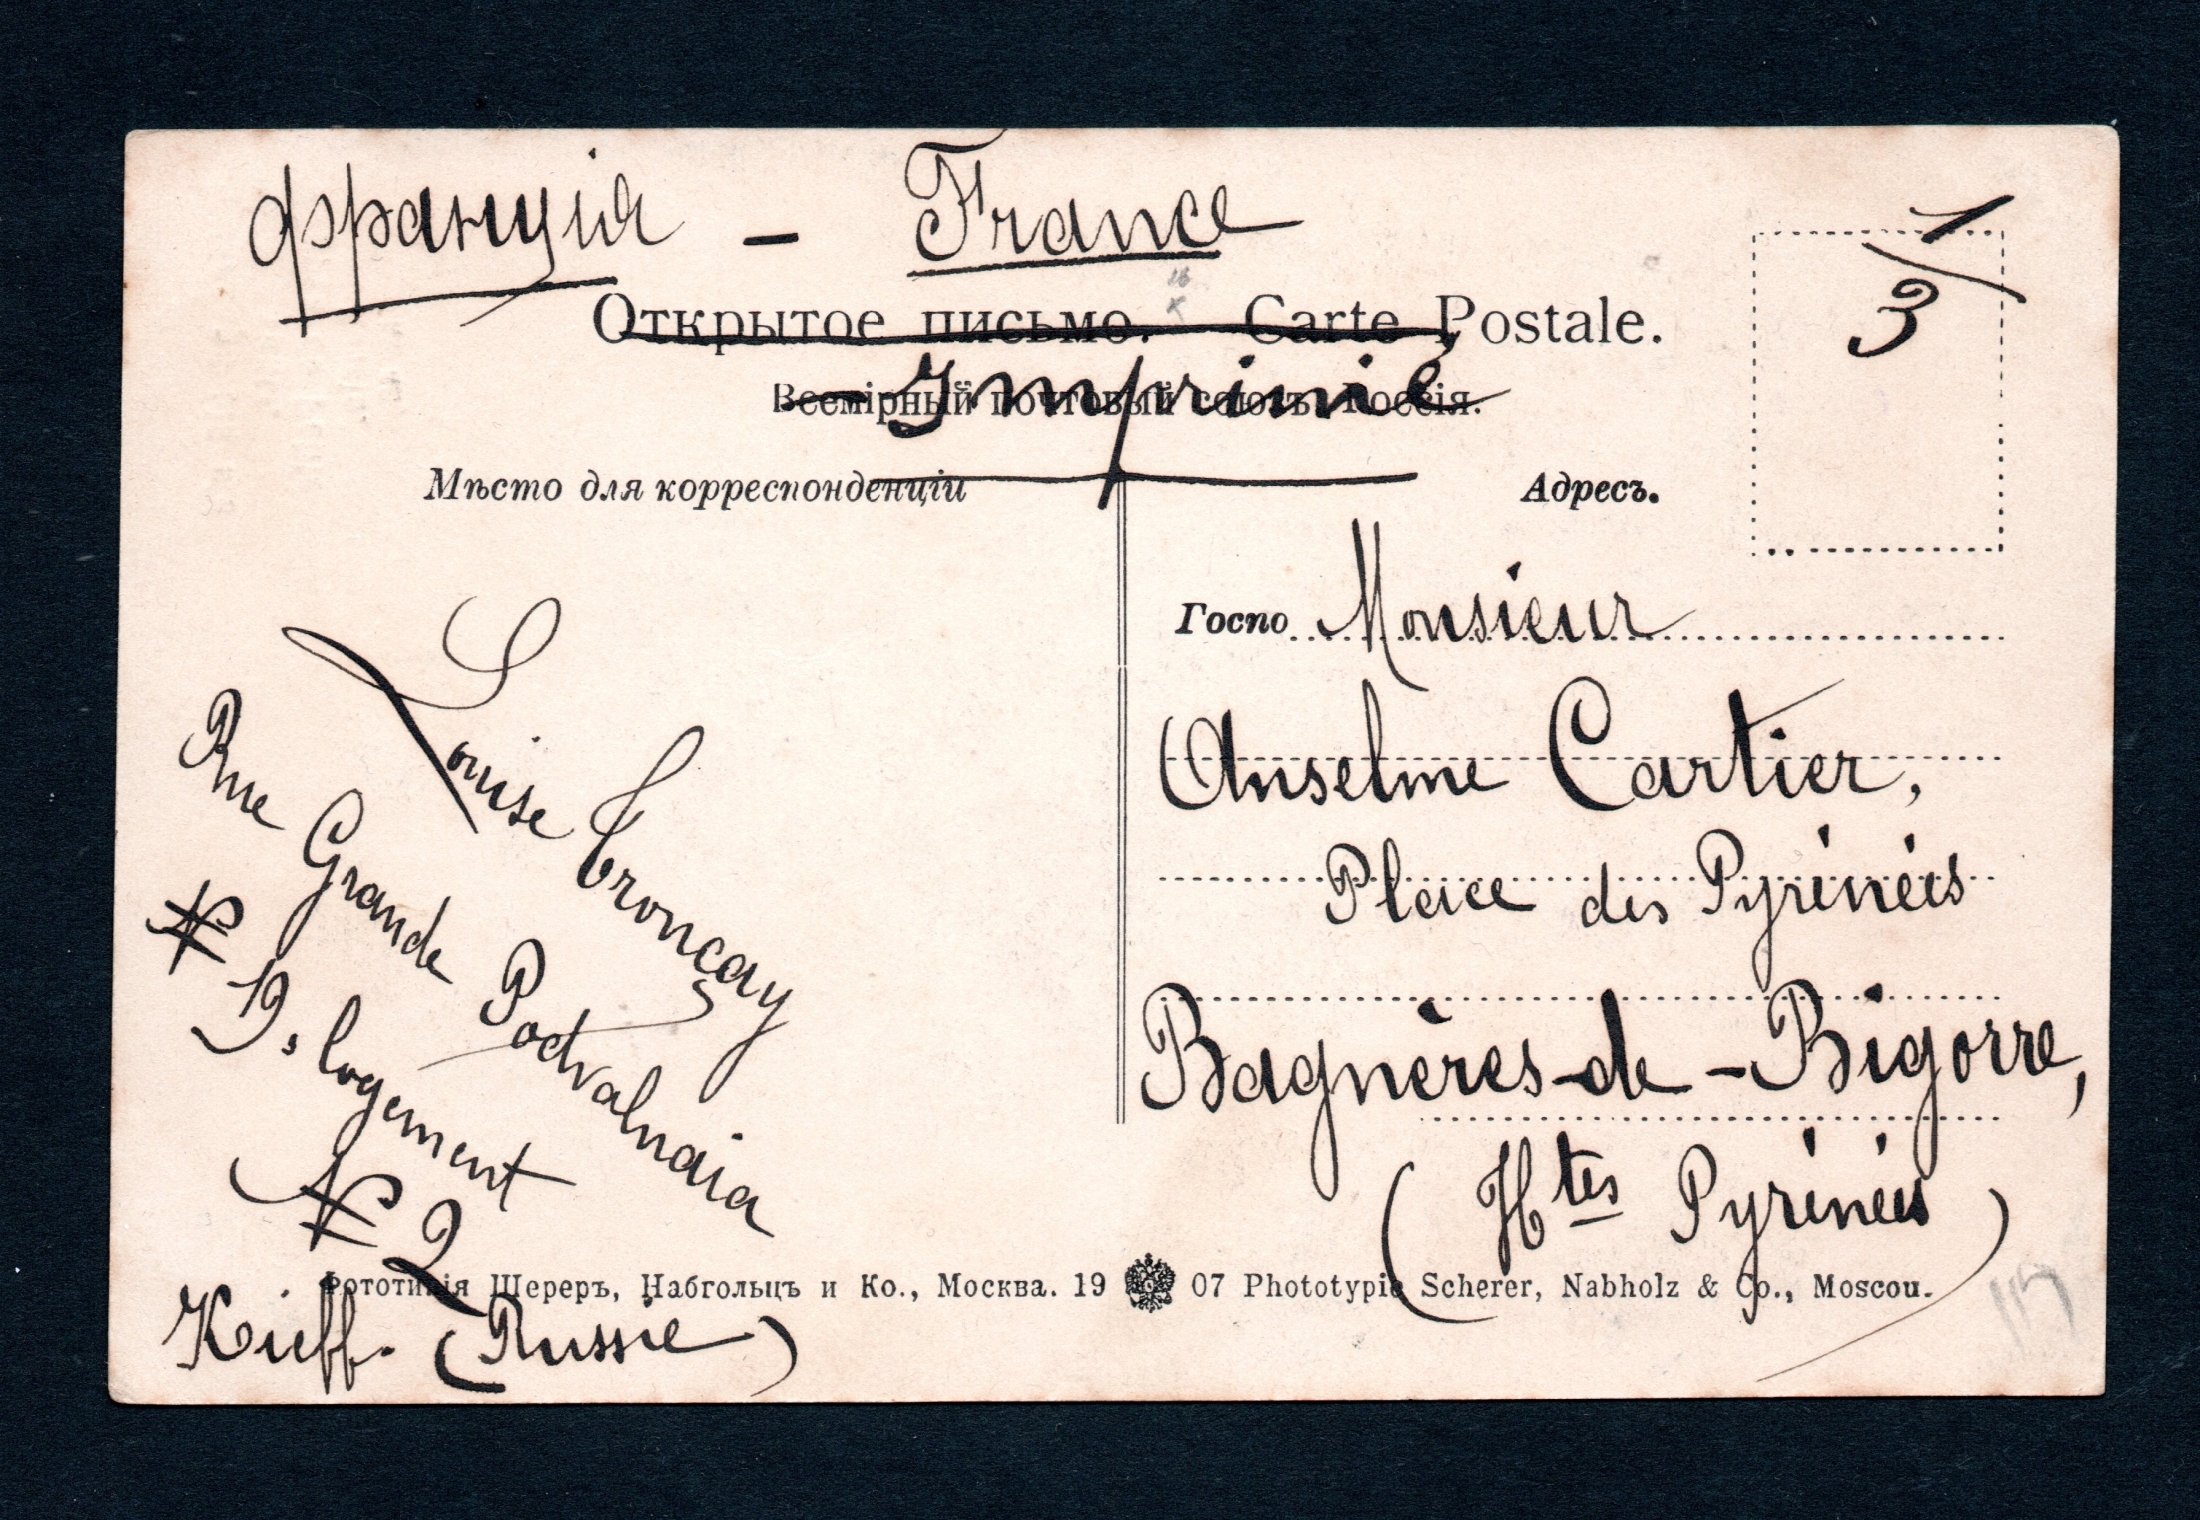 Франція - France
Открытое письмо. Carte Postale.
- Imprimé -
Всемірный почтовый союзъ. Россія.
1/3
Мѣсто для корреспонденціи
Адресъ.
Госпо Monsieur
Anselme Cartier,
Place des Pyrénées
Bagnères-de-Bigorre,
(Htes Pyrénées)
Louise Tronçay
Rue Grande Podvalnaia
№ 19, logement
№ 2
Kieff. (Russie)
Фототипія Шереръ, Набгольцъ и Ко., Москва. 19 07 Phototypie Scherer, Nabholz & Co., Moscou.